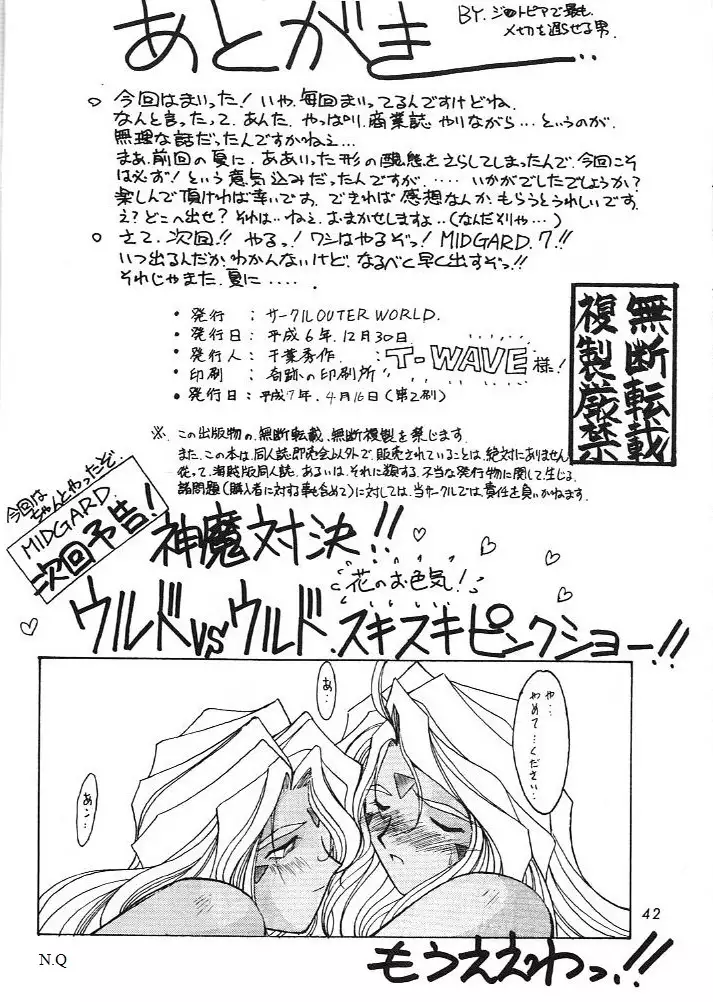 あとがき…
BY. ジオトピアで最も
〆切を遅らせる男.
○ 今回はまいった！いや、毎回まいってるんですけどね.
なんと言ったって、あんた、やっぱり、商業誌やりながら…というのが、
無理な話だったんですかねえ…
まあ、前回の夏に、ああいった形の醜態をさらしてしまったんで、今回こそ
は必ず！という意気込みだったんですが、‥‥いかがでしたでしょうか？
楽しんで頂ければ幸いです。できれば感想なんか、もらうとうれしいです。
え？どこへ出せ？それは‥ねえ、おまかせしますよ‥(なんだそりゃ…)
○ さて、次回!! やるっ！ワシはやるぞっ！MIDGARD.7!!
いつ出るんだか、わかんないけど、なるべく早く出すぞっ!!
それじゃまた、夏に‥‥
・発行 : サークルOUTER WORLD.
・発行日: 平成6年.12月30日.
・発行人: 千葉秀作.
・印刷 : 奇跡の印刷所 : T-WAVE 様!
・発行日: 平成7年.4月16日(第2刷)
無断転載
複製厳禁
※ この出版物の、無断転載、無断複製を禁じます.
また、この本は、同人誌即売会以外で、販売されていることは、絶対にありません
従って、海賊版同人誌、あるいは、それに類する、不当な発行物に関して生じる、
諸問題(購入者に対する事も含めて)に対しては、当サークルでは、責任を負いかねます.
今回は
ちゃんとやったぞ.
MIDGARD
次回予告！
神魔対決!!
花のお色気！
ウルドvsウルド.スキスキピンクショー!!
や…
やめて…ください…
あ…
あン…
42
もうええわっ!!
N.Q